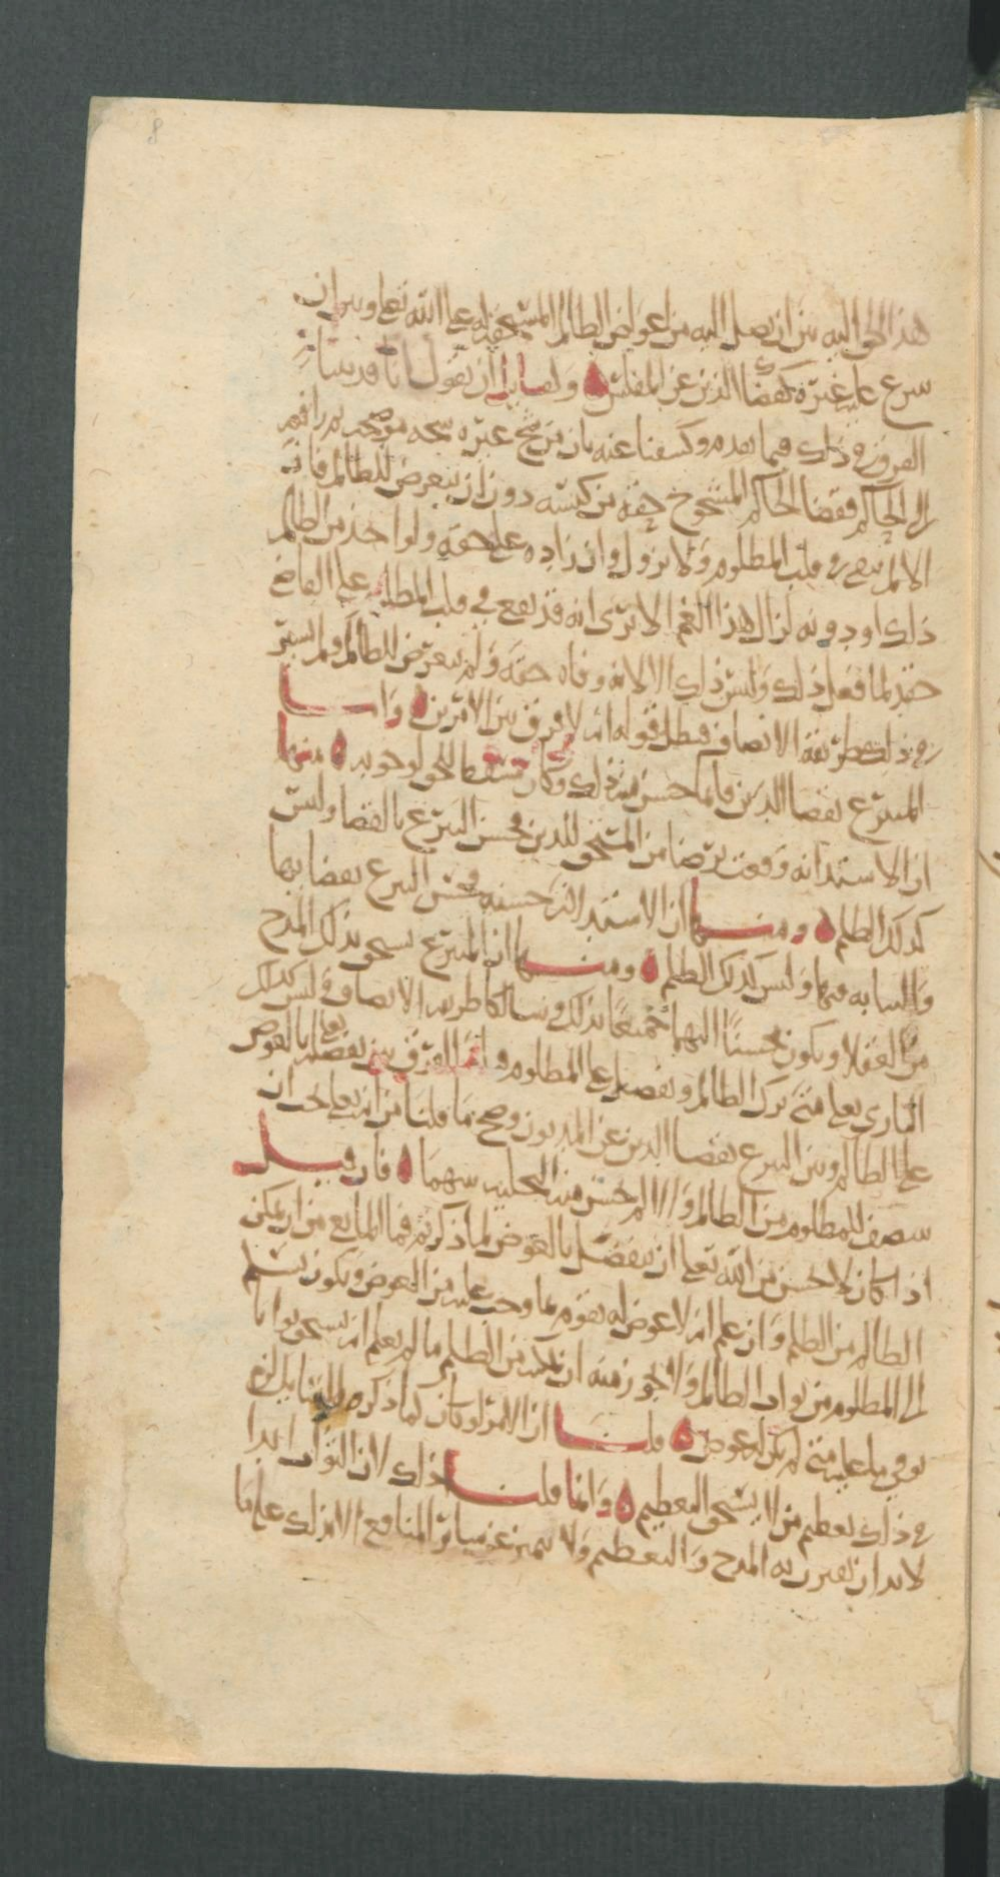 هذا الحق اليه بين ان يصل اليه من اعواض الظالم المستحقة له على الله تعلى وبين ان
يتبرع عليه غيره كقضا الدين عن المفلس ولقايل ان يقول انا قد بينا
الفرق في ذلك فيما تقدم وكشفنا عنه بان من شج غيره شجه موضحه ثم رافعه
الى الحاكم فقضا الحاكم المشجوج حقه من كيسه دون ان يتعرض للظالم فان
الالم يبقى في قلب المظلوم ولا يزول وان زاده على حقه ولو اخذ من الظالم
ذلك او دونه لزال هذا الغم الا ترى انه قد يقع في قلب المظلوم على القاضي
حقد لما فعل ذلك وليس ذلك الا لانه وفاه حقه ولم يتعرض للظالم ولم يسر
في ذلك طريقة الانصاف فبطل قوله انه لا فرق بين الامرين واما
المتبرع بقضا الدين فانما حسن منه ذلك وكان مسقطا للحق لوجوه منها
ان الاستدانه وقعت برضا من المستحق للدين فحسن التبرع بالقضا وليس
كذلك الظلم ومنها ان الاستدانه حسنه فحسن التبرع بقضايها
والنيابه فيها وليس كذلك الظلم ومنها ان المتبرع يستحق بذلك المدح
من العقلا ويكون محسنا اليهما جميعا بذلك وسالكا طريقه الانصاف وليس كذلك
الباري تعلى متى ترك الظالم وتفضل على المظلوم فانما الفرق بين تفضله تعلى بالعوض
على الظالم وبين التبرع بقضا الدين عن المديون وصح ما قلنا من انه تعلى يجب ان
ينصف للمظلوم من الظالم والا لم يحسن منه التخليه بينهما فان قيل
اذا كان لا يحسن من الله تعلى ان يتفضل بالعوض لما ذكرتم فما المانع من ان يمكن
الظالم من الظلم وان علم انه لا عوض له يقوم بما وجب عليه من العوض ويكون يسلم
الى المظلوم من ثواب الظالم ولا يجوز منه ان يمكنه من الظلم ما لم يعلم انه يستحق ثوابا
يوفي ما عليه متى لم يكن له عوض قلنا ان الامر لو كان كما ذكره السايل لزم
في ذلك تعظيم من لا يستحق التعظيم وانما قلنا ذلك لان الثواب ابدا
لا بد ان يقترن به المدح والتعظيم ولا يتميز عن ساير المنافع الا بذلك على ما